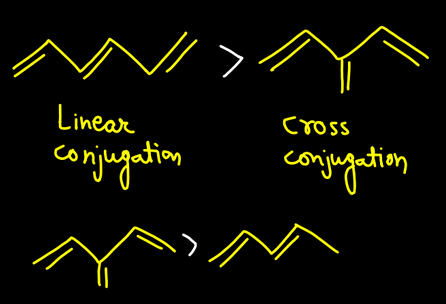 >
Linear
conjugation
cross
conjugation
>